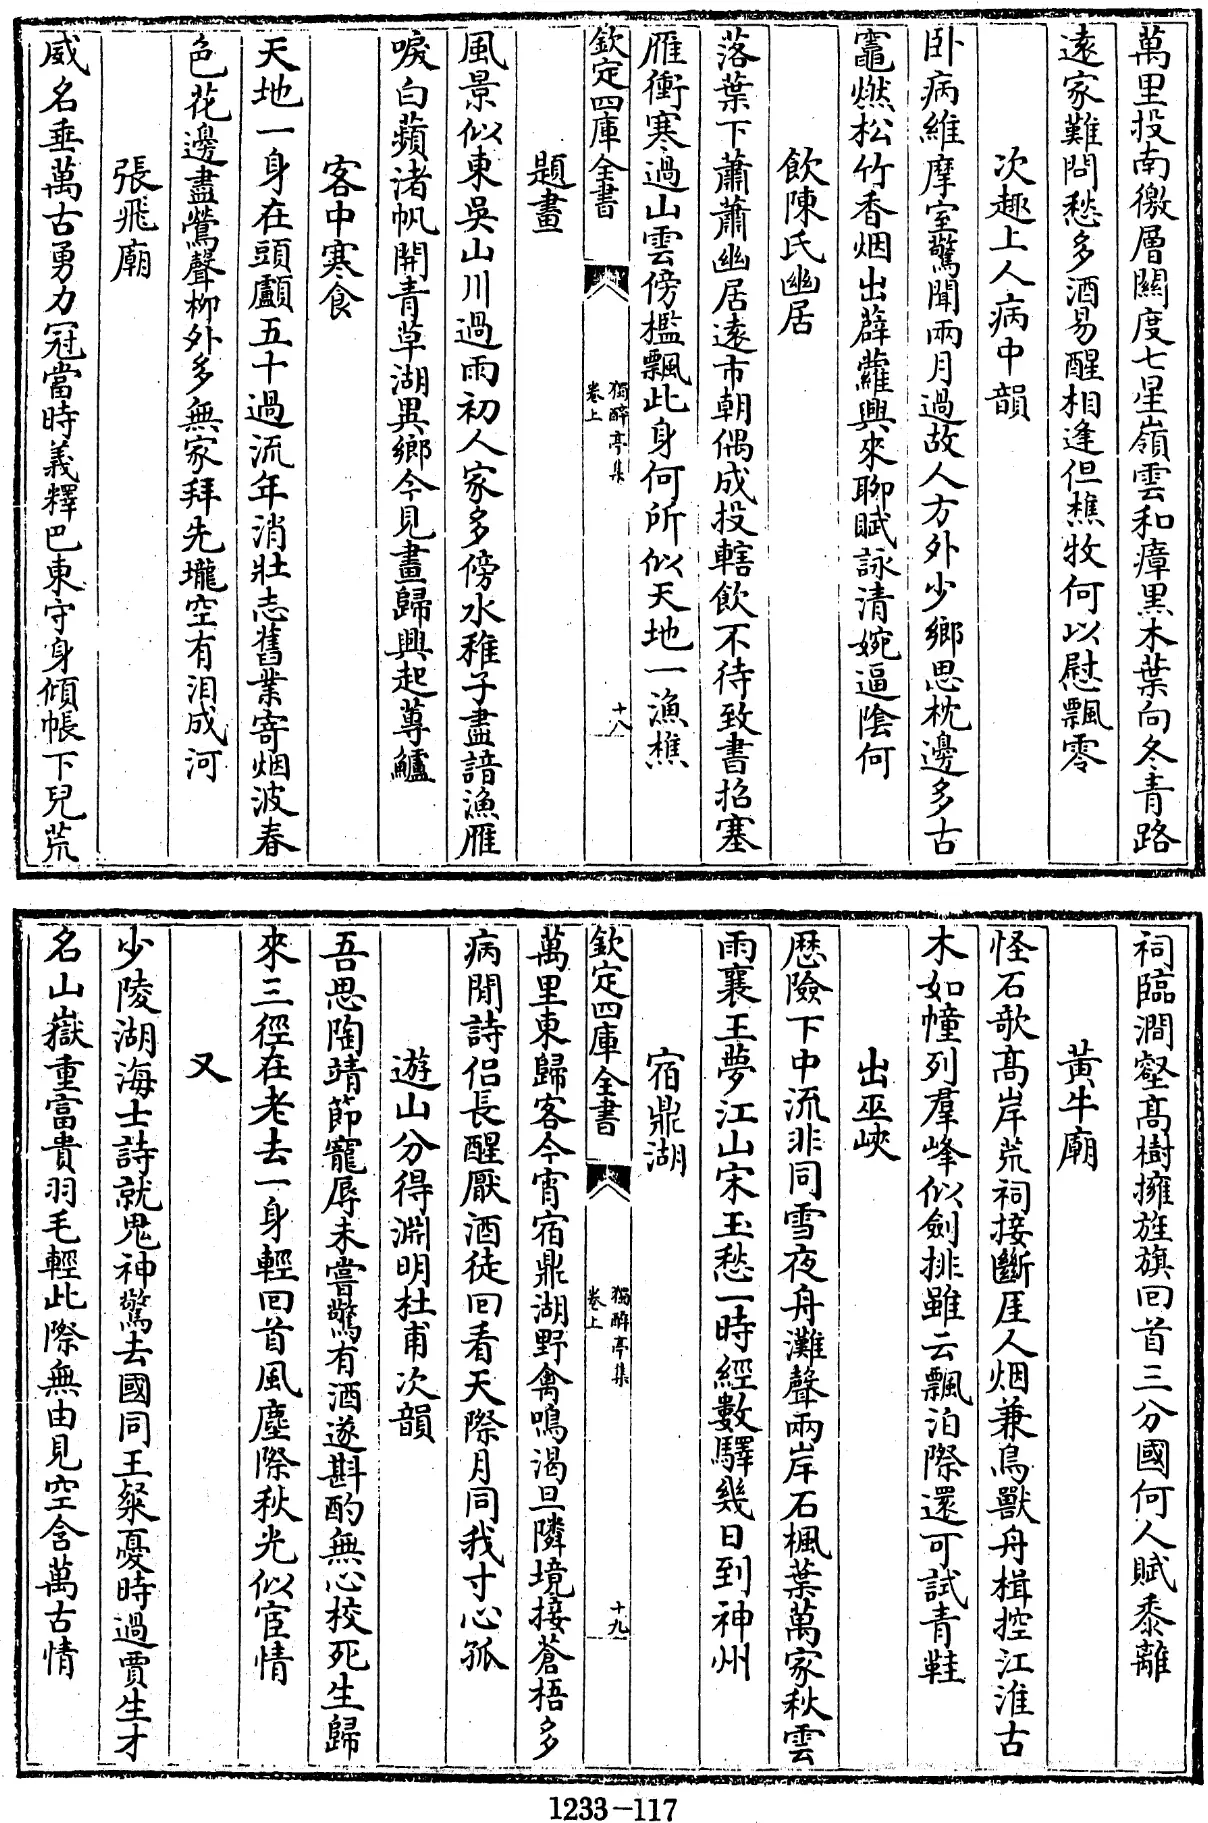 萬里投南徼層關度七星嶺雲和瘴黑木葉向冬青路
遠家難問愁多酒易醒相逢但樵牧何以慰飄零
次趣上人病中韻
卧病維摩室驚聞兩月過故人方外少鄉思枕邊多古
竈燃松竹香烟出薜蘿興來聊賦詠清婉逼陰何
飲陳氏幽居
落葉下蕭蕭幽居遠市朝偶成投轄飲不待致書招塞
雁衝寒過山雲傍檻飄此身何所似天地一漁樵
欽定四庫全書
獨醉亭集
卷上
十八
題畫
風景似東吳山川過雨初人家多傍水稚子盡諳漁雁
唳白蘋渚帆開青草湖異鄉今見畫歸興起蓴鱸
客中寒食
天地一身在頭顱五十過流年消壯志舊業寄烟波春
色花邊盡鶯聲柳外多無家拜先壠空有淚成河
張飛廟
威名垂萬古勇力冠當時義釋巴東守身傾帳下兒荒
祠臨澗壑髙樹擁旌旗回首三分國何人賦黍離
黃牛廟
怪石歌髙岸荒祠接斷厓人烟兼鳥獸舟楫控江淮古
木如幢列羣峰似劍排雖云飄泊際還可試青鞋
出巫峽
歴險下中流非同雪夜舟灘聲兩岸石楓葉萬家秋雲
雨襄王夢江山宋玉愁一時經數驛幾日到神州
宿鼎湖
欽定四庫全書
獨醉亭集
卷上
十九
萬里東歸客今宵宿鼎湖野禽鳴渴旦隣境接蒼梧多
病閒詩侣長醒厭酒徒回看天際月同我寸心孤
遊山分得淵明杜甫次韻
吾思陶靖節寵辱未嘗驚有酒遂斟酌無心校死生歸
來三徑在老去一身輕回首風塵際秋光似宦情
又
少陵湖海士詩就鬼神驚去國同王粲憂時過賈生才
名山嶽重富貴羽毛輕此際無由見空含萬古情
1233-117